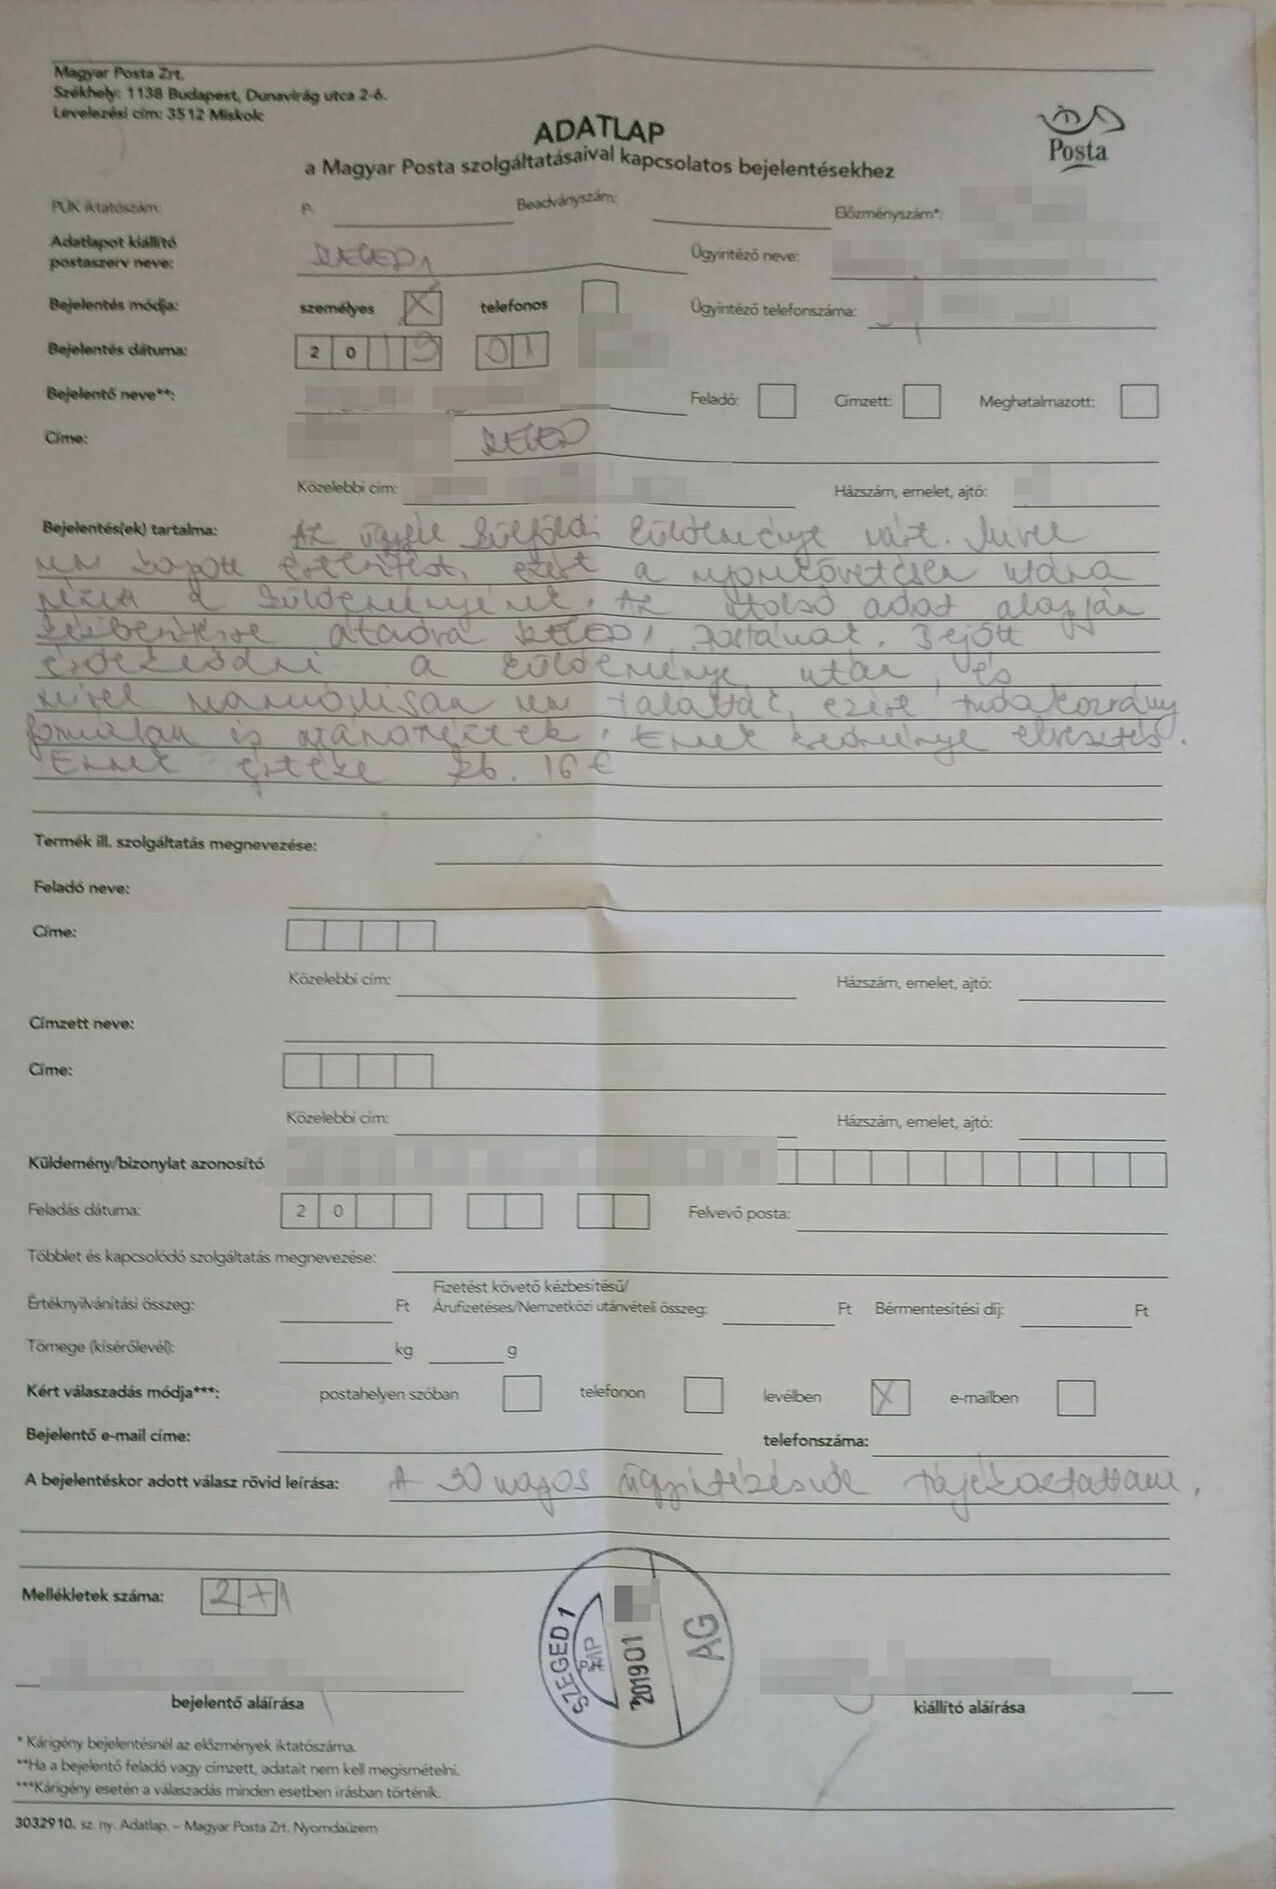 Magyar Posta Zrt.
Székhely: 1138 Budapest, Dunavirág utca 2-6.
Levelezési cím: 3512 Miskolc
ADATLAP
a Magyar Posta szolgáltatásaival kapcsolatos bejelentésekhez
Posta
PÜK iktatószám: P. Beadványszám: Előzményszám*:
Adatlapot kiállító
postaszerv neve: SZEGED 1 Ügyintéző neve:
Bejelentés módja: személyes X telefonos Ügyintéző telefonszáma:
Bejelentés dátuma: 2019 01
Bejelentő neve**: Feladó: Címzett: Meghatalmazott:
Címe: SZEGED
Közelebbi cím: Házszám, emelet, ajtó:
Bejelentés(ek) tartalma: Az ügyfél külföldi küldeményt várt. Mivel
nem kapott értesítést, ezért a nyomkövetésen utána
nézett a küldeményének. Az utolsó adat alapján
kézbesítésre átadva SZEGED 1 postának. Bejött
érdeklődni a küldeménye után, és
mivel manuálisan nem találták, ezért tudakozvány
formában is utánanéztek. Ennek eredménye elvesztés.
Ennek értéke kb. 16 €
Termék ill. szolgáltatás megnevezése:
Feladó neve:
Címe:
Közelebbi cím: Házszám, emelet, ajtó:
Címzett neve:
Címe:
Közelebbi cím: Házszám, emelet, ajtó:
Küldemény/bizonylat azonosító
Feladás dátuma: 20 Felvevő posta:
Többlet és kapcsolódó szolgáltatás megnevezése:
Fizetést követő kézbesítésű/
Értéknyilvánítási összeg: Ft Árufizetéses/Nemzetközi utánvételi összeg: Ft Bérmentesítési díj: Ft
Tömege (kísérőlevél): kg g
Kért válaszadás módja***: postahelyen szóban telefonon levélben X e-mailben
Bejelentő e-mail címe: telefonszáma:
A bejelentéskor adott válasz rövid leírása: A 30 napos ügyintézésről tájékoztattam.
Mellékletek száma: 2+1
SZEGED 1
2019 01
AG
bejelentő aláírása kiállító aláírása
* Kárigény bejelentésnél az előzmények iktatószáma.
**Ha a bejelentő feladó vagy címzett, adatait nem kell megismételni.
***Kárigény esetén a válaszadás minden esetben írásban történik.
3032910. sz. ny. Adatlap. – Magyar Posta Zrt. Nyomdaüzem